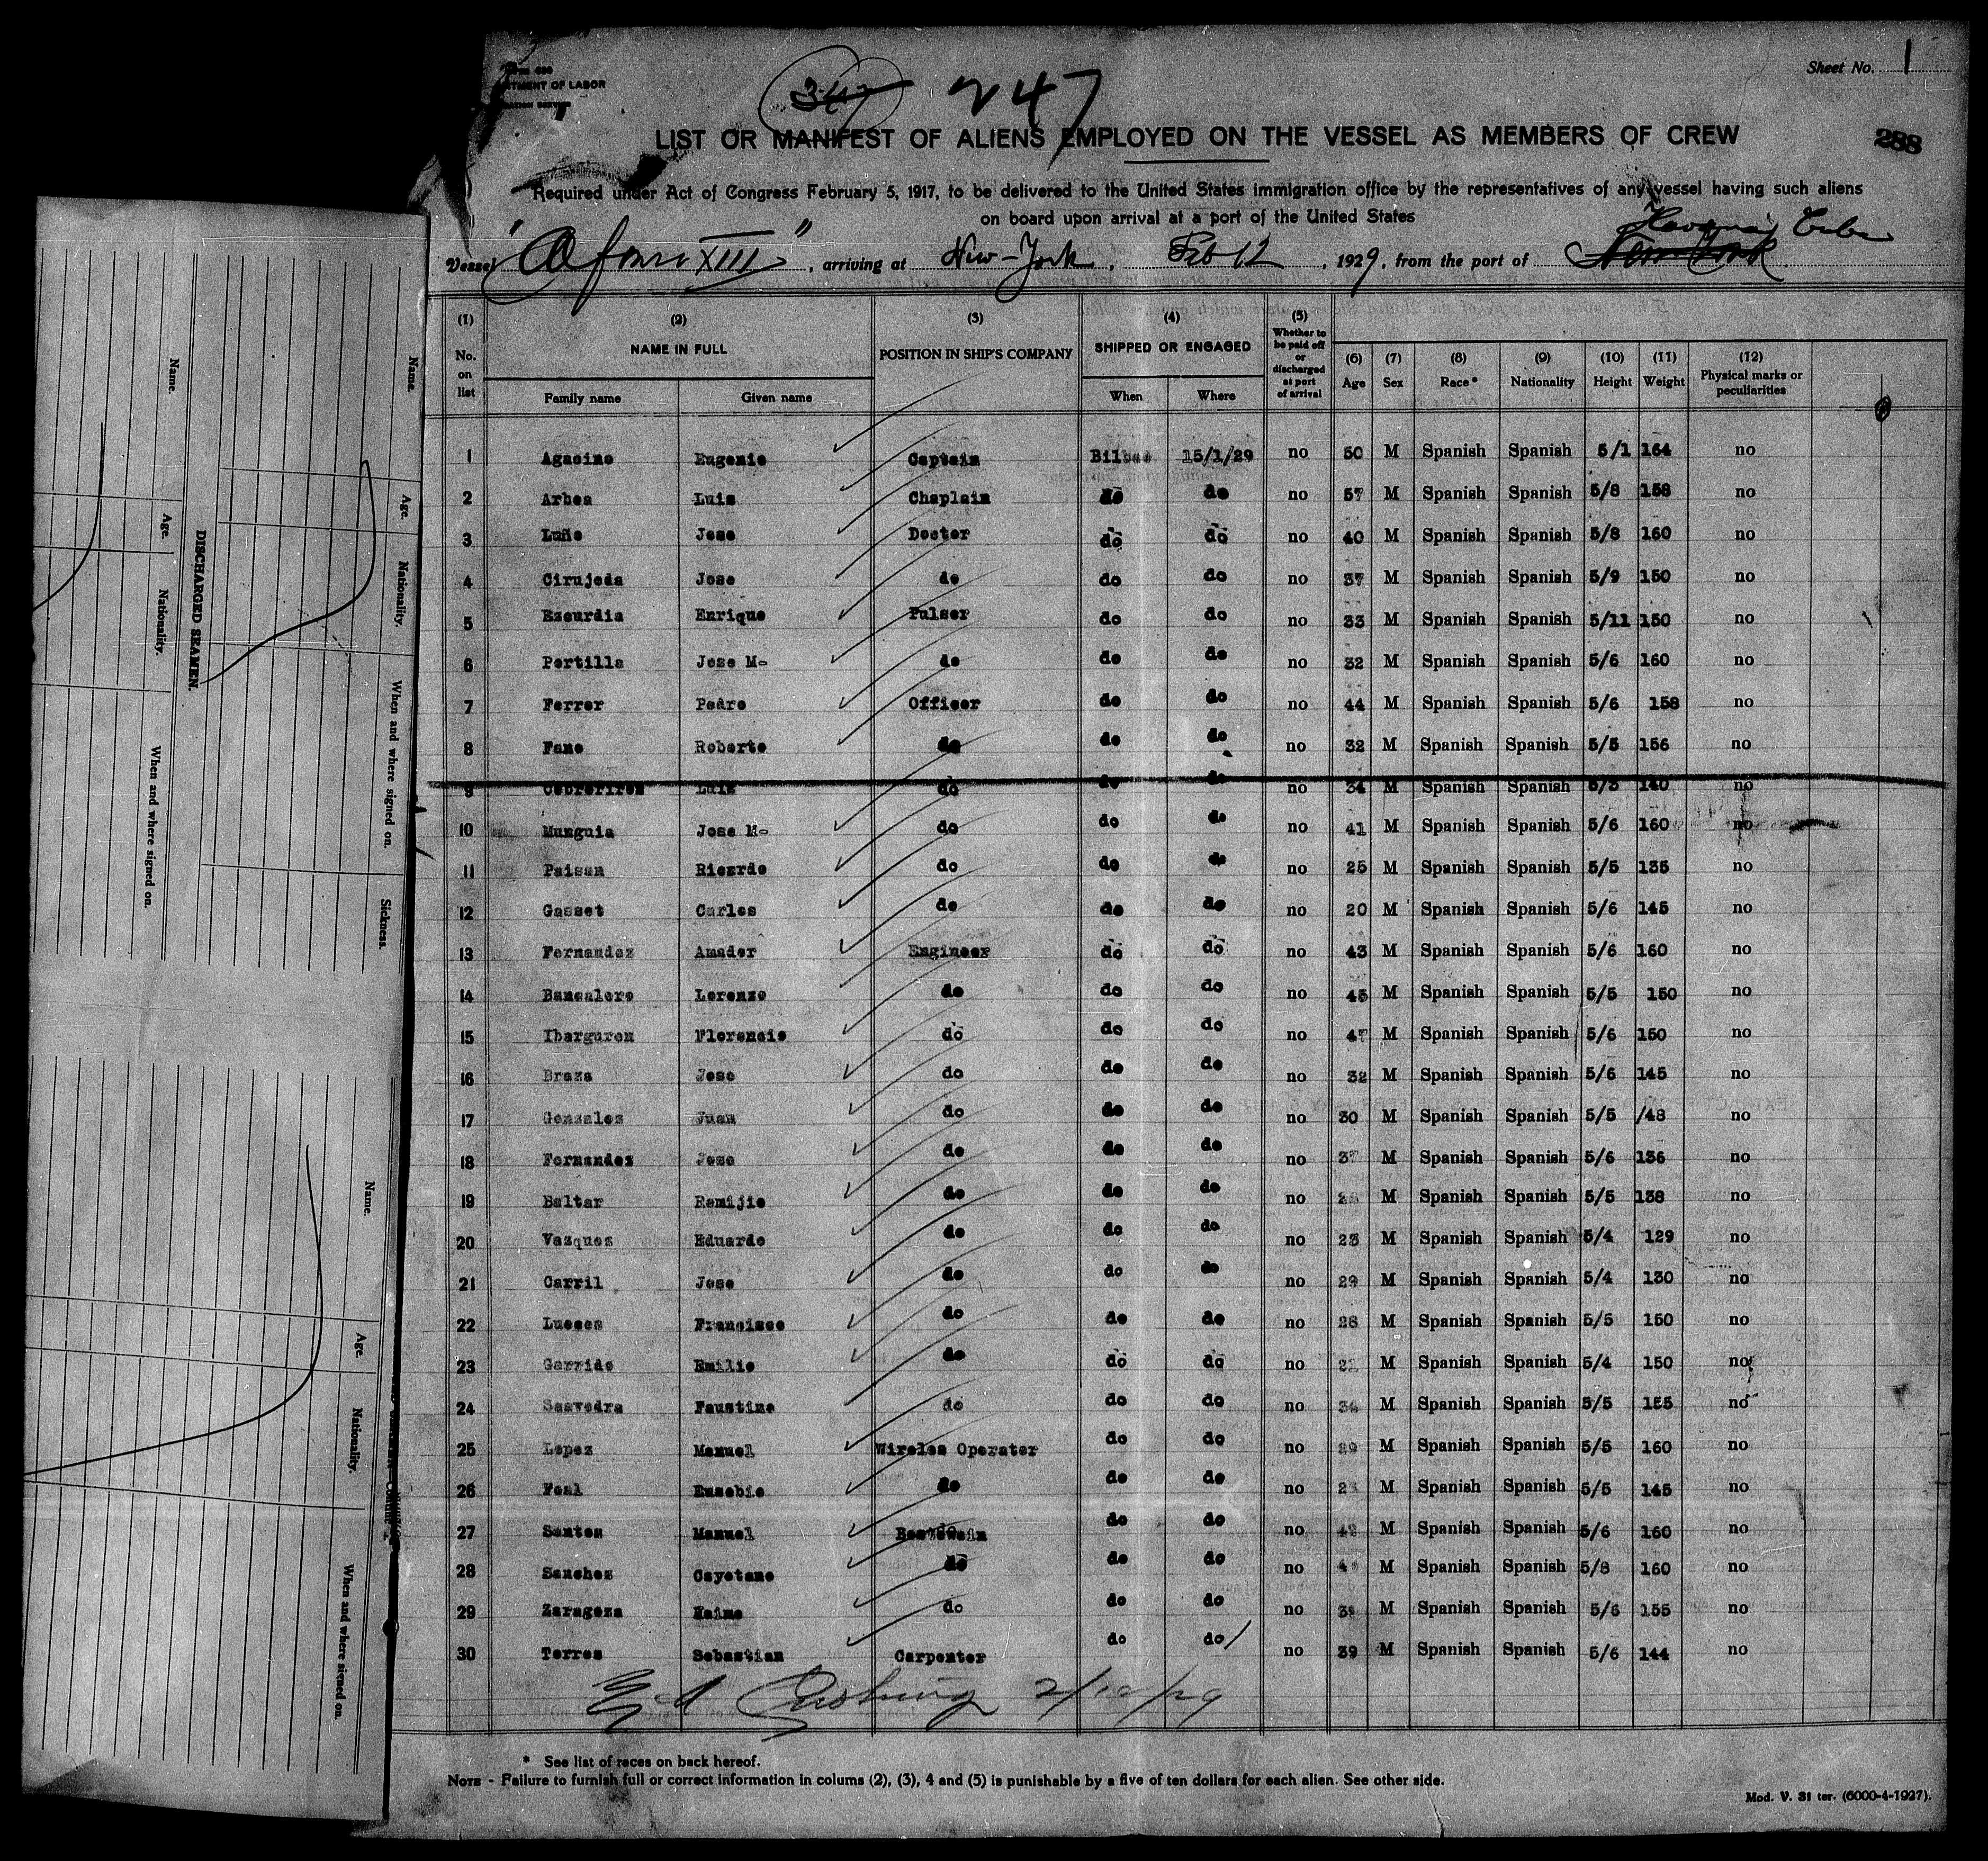 Sheet No. 1
TMENT OF LABOR
347 247
LIST OR MANIFEST OF ALIENS EMPLOYED ON THE VESSEL AS MEMBERS OF CREW
288
Required under Act of Congress February 5, 1917, to be delivered to the United States immigration office by the representatives of any vessel having such aliens
on board upon arrival at a port of the United States
Vessel "Alfonso XIII", arriving at New-York, Feb 12, 1929, from the port of New York Havana, Cuba
(1) No. on list (2) NAME IN FULL Family name Given name (3) POSITION IN SHIP'S COMPANY (4) SHIPPED OR ENGAGED When Where (5) Whether to be paid off or discharged at port of arrival (6) Age (7) Sex (8) Race* (9) Nationality (10) Height (11) Weight (12) Physical marks or peculiarities
1 Agacino Eugenio Captain Bilbao 15/1/29 no 50 M Spanish Spanish 5/1 164 no
2 Arbea Luis Chaplain do do no 57 M Spanish Spanish 5/8 158 no
3 Luño Jose Doctor do do no 40 M Spanish Spanish 5/8 160 no
4 Cirujeda Jose do do do no 37 M Spanish Spanish 5/9 150 no
5 Ezcurdia Enrique Pulser do do no 33 M Spanish Spanish 5/11 150 no
6 Portilla Jose Mª do do do no 32 M Spanish Spanish 5/6 160 no
7 Ferrer Pedro Officer do do no 44 M Spanish Spanish 5/6 158 no
8 Fano Roberto do do do no 32 M Spanish Spanish 5/5 156 no
9 Luis do do do no 34 M Spanish Spanish 5/3 140 no
10 Munguia Jose Mª do do do no 41 M Spanish Spanish 5/6 160 no
11 Paisan Ricardo do do do no 25 M Spanish Spanish 5/5 135 no
12 Gasset Carlos do do do no 20 M Spanish Spanish 5/6 145 no
13 Fernandez Amador Engineer do do no 43 M Spanish Spanish 5/6 160 no
14 Bancalero Lorenzo do do do no 45 M Spanish Spanish 5/5 150 no
15 Ibarguren Florencio do do do no 47 M Spanish Spanish 5/6 150 no
16 Braza Jose do do do no 32 M Spanish Spanish 5/6 145 no
17 Gonzalez Juan do do do no 30 M Spanish Spanish 5/5 /48 no
18 Fernandez Jose do do do no 37 M Spanish Spanish 5/6 136 no
19 Baltar Remijio do do do no M Spanish Spanish 5/5 138 no
20 Vazquez Eduardo do do do no 23 M Spanish Spanish 5/4 129 no
21 Carril Jose do do do no 29 M Spanish Spanish 5/4 130 no
22 Lueces Francisco do do do no 28 M Spanish Spanish 5/5 150 no
23 Garrido Emilio do do do no M Spanish Spanish 5/4 150 no
24 Saavedra Faustino do do do no M Spanish Spanish 5/5 155 no
25 Lopez Manuel Wireles Operator do do no M Spanish Spanish 5/5 160 no
26 Feal Eusebio do do do no M Spanish Spanish 5/5 145 no
27 Santos Manuel Boatswain do do no M Spanish Spanish 5/6 160 no
28 Sanchez Cayetano do do do no M Spanish Spanish 5/8 160 no
29 Zaragoza Jaime do do do no M Spanish Spanish 5/6 155 no
30 Torres Sebastian Carpenter do do no 39 M Spanish Spanish 5/6 144 no
2/12/29
* See list of races on back hereof.
NOTE - Failure to furnish full or correct information in colums (2), (3), 4 and (5) is punishable by a five of ten dollars for each alien. See other side.
Mod. V. 31 ter. (6000-4-1927).
DISCHARGED SEAMEN.
Name. Age. Nationality. When and where signed on.
Name. Age. Nationality. When and where signed on. Sickness.
Name. Age. Nationality. When and where signed on.